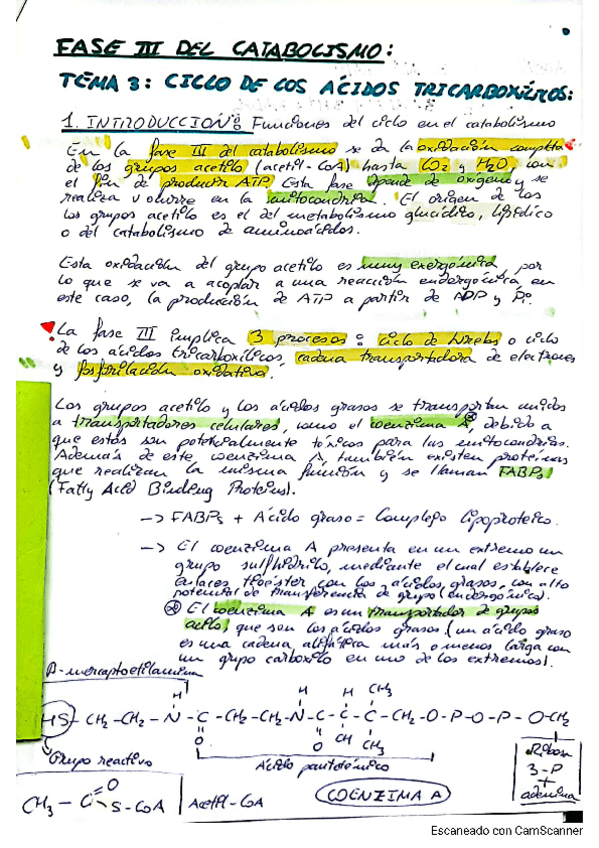 FASE III DEL CATABOLISMO:
TEMA 3: CICLO DE LOS ÁCIDOS TRICARBOXÍLICOS:
1. INTRODUCCIÓN: Funciones del ciclo en el catabolismo
En la fase III del catabolismo se da la oxidación completa
de los grupos acetilo (acetil-CoA) hasta CO2 y H2O, con
el fin de producir ATP. Esta fase depende de oxígeno y se
realiza u ocurre en la mitocondria. El origen de los
los grupos acetilo es el del metabolismo glucídico, lipídico
o del catabolismo de aminoácidos.
Esta oxidación del grupo acetilo es muy exergónica, por
lo que se va a acoplar a una reacción endergónica, en
este caso, la producción de ATP a partir de ADP y Pi.
La fase III implica 3 procesos: ciclo de Krebs o ciclo
de los ácidos tricarboxílicos, cadena transportadora de electrones
y fosforilación oxidativa.
Los grupos acetilo y los ácidos grasos se transportan unidos
a transportadores celulares, como el coenzima A, debido a
que estos son potencialmente tóxicos para las mitocondrias.
Además de este, coenzima A, también existen proteínas
que realizan la misma función y se llaman FABPs
(Fatty Acid Binding Proteins).
-> FABPs + Ácido graso = Complejo lipoproteico.
-> El coenzima A presenta en un extremo un
grupo sulfhidrilo, mediante el cual establece
enlaces tioéster con los ácidos grasos, con alto
potencial de transferencia de grupo (endergónica).
El coenzima A es un transportador de grupos
acilo, que son los ácidos grasos (un ácido graso
es una cadena alifática más o menos larga con
un grupo carboxilo en uno de los extremos).
β-mercaptoetilamina
H H H CH3
HS - CH2 - CH2 - N - C - CH2 - CH2 - N - C - C - C - CH2 - O - P - O - P - O - CH2
O O OH CH3
Grupo reactivo
Ácido pantoténico
Ribosa
3-P
+
adenina
CH3 - C O S-CoA
Acetil-CoA
COENZIMA A
Escaneado con CamScanner